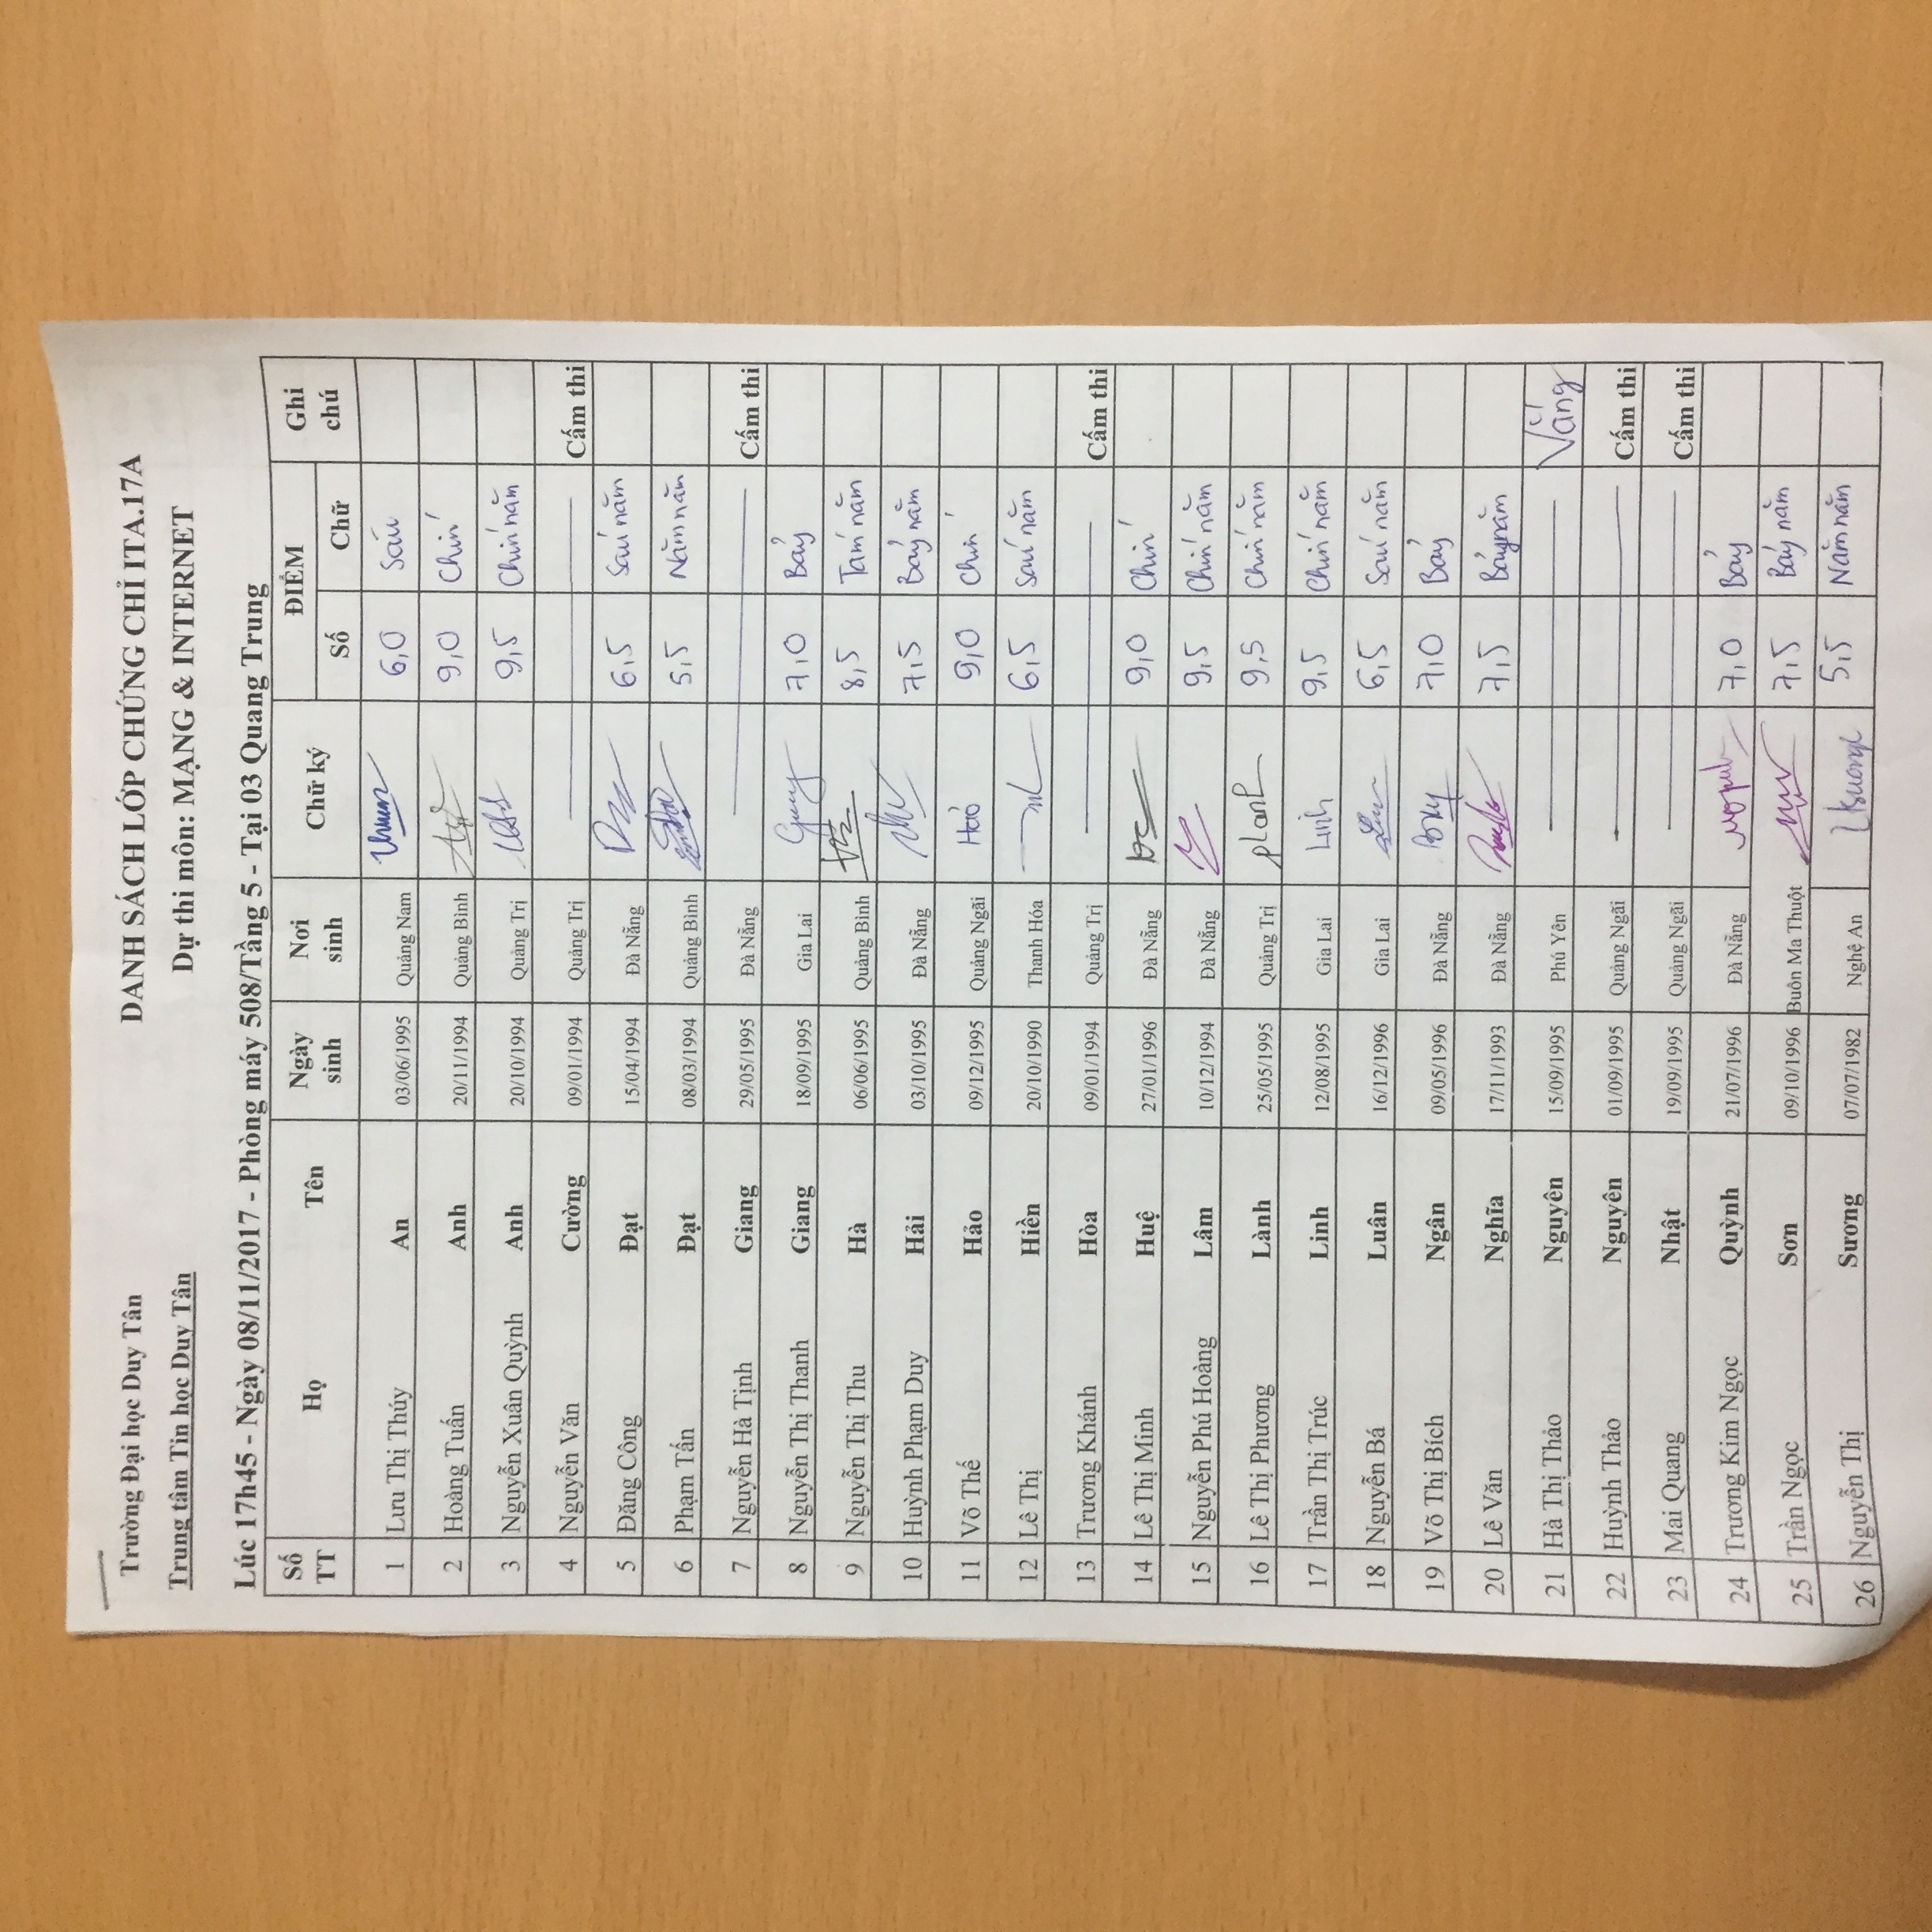 Trường Đại học Duy Tân DANH SÁCH LỚP CHỨNG CHỈ ITA.17A
Trung tâm Tin học Duy Tân Dự thi môn: MẠNG & INTERNET
Lúc 17h45 - Ngày 08/11/2017 - Phòng máy 508/Tầng 5 - Tại 03 Quang Trung
Số TT Họ Tên Ngày sinh Nơi sinh Chữ ký ĐIỂM Số Chữ Ghi chú
1 Lưu Thị Thúy An 03/06/1995 Quảng Nam 6,0 Sáu
2 Hoàng Tuấn Anh 20/11/1994 Quảng Bình 9,0 Chín
3 Nguyễn Xuân Quỳnh Anh 20/10/1994 Quảng Trị 9,5 Chín năm
4 Nguyễn Văn Cường 09/01/1994 Quảng Trị Cấm thi
5 Đặng Công Đạt 15/04/1994 Đà Nẵng 6,5 Sáu năm
6 Phạm Tấn Đạt 08/03/1994 Quảng Bình 5,5 Năm năm
7 Nguyễn Hà Tịnh Giang 29/05/1995 Đà Nẵng Cấm thi
8 Nguyễn Thị Thanh Giang 18/09/1995 Gia Lai 7,0 Bảy
9 Nguyễn Thị Thu Hà 06/06/1995 Quảng Bình 8,5 Tám năm
10 Huỳnh Phạm Duy Hải 03/10/1995 Đà Nẵng 7,5 Bảy năm
11 Võ Thế Hảo 09/12/1995 Quảng Ngãi Hảo 9,0 Chín
12 Lê Thị Hiền 20/10/1990 Thanh Hóa 6,5 Sáu năm
13 Trương Khánh Hòa 09/01/1994 Quảng Trị Cấm thi
14 Lê Thị Minh Huệ 27/01/1996 Đà Nẵng 9,0 Chín
15 Nguyễn Phú Hoàng Lâm 10/12/1994 Đà Nẵng 9,5 Chín năm
16 Lê Thị Phương Lành 25/05/1995 Quảng Trị 9,5 Chín năm
17 Trần Thị Trúc Linh 12/08/1995 Gia Lai Linh 9,5 Chín năm
18 Nguyễn Bá Luân 16/12/1996 Gia Lai 6,5 Sáu năm
19 Võ Thị Bích Ngân 09/05/1996 Đà Nẵng 7,0 Bảy
20 Lê Văn Nghĩa 17/11/1993 Đà Nẵng 7,5 Bảy năm
21 Hà Thị Thảo Nguyên 15/09/1995 Phú Yên Vắng
22 Huỳnh Thảo Nguyên 01/09/1995 Quảng Ngãi Cấm thi
23 Mai Quang Nhật 19/09/1995 Quảng Ngãi Cấm thi
24 Trương Kim Ngọc Quỳnh 21/07/1996 Đà Nẵng 7,0 Bảy
25 Trần Ngọc Sơn 09/10/1996 Buôn Ma Thuột 7,5 Bảy năm
26 Nguyễn Thị Sương 07/07/1982 Nghệ An 5,5 Năm năm